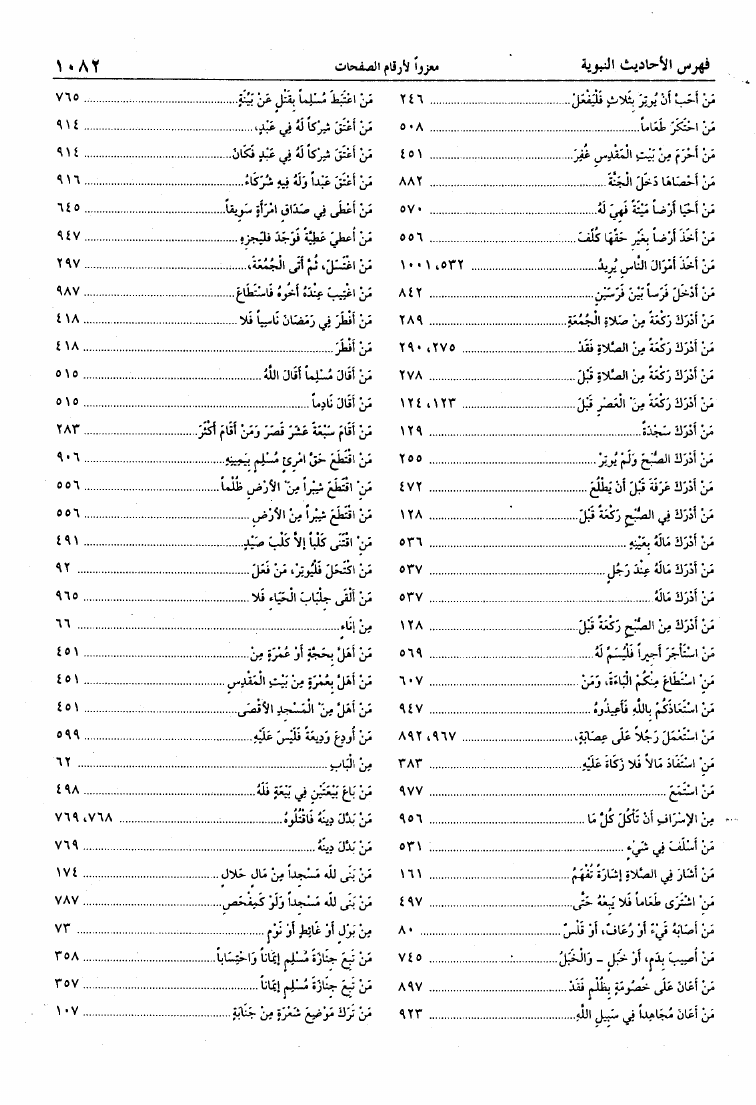 فهرس الأحاديث النبوية
معزواً لأرقام الصفحات
١٠٨٢
مَنْ أَحَبَّ أَنْ يُوتِرَ بِثَلاثٍ فَلْيَفْعَلْ ٢٤٦
مَنْ احْتَكَرَ طَعَاماً ٥٠٨
مَنْ أَحْرَمَ مِنْ بَيْتِ الْمَقْدِسِ غُفِرَ ٤٥١
مَنْ أَحْصَاهَا دَخَلَ الْجَنَّةَ ٨٨٢
مَنْ أَحْيَا أَرْضاً مَيْتَةً فَهِيَ لَهُ ٥٧٠
مَنْ أَخَذَ أَرْضاً بِغَيْرِ حَقِّهَا كُلِّفَ ٥٥٦
مَنْ أَخَذَ أَمْوَالَ النَّاسِ يُرِيدُ ٥٣٢، ١٠٠١
مَنْ أَدْخَلَ فَرَساً بَيْنَ فَرَسَيْنِ ٨٤٢
مَنْ أَدْرَكَ رَكْعَةً مِنْ صَلاةِ الْجُمُعَةِ ٢٨٩
مَنْ أَدْرَكَ رَكْعَةً مِنَ الصَّلاةِ فَقَدْ ٢٧٥، ٢٩٠
مَنْ أَدْرَكَ رَكْعَةً مِنَ الصَّلاةِ قَبْلَ ٢٧٨
مَنْ أَدْرَكَ رَكْعَةً مِنَ الْعَصْرِ قَبْلَ ١٢٣، ١٢٤
مَنْ أَدْرَكَ سَجْدَةً ١٢٩
مَنْ أَدْرَكَ الصُّبْحَ وَلَمْ يُوتِرْ ٢٥٥
مَنْ أَدْرَكَ عَرَفَةَ قَبْلَ أَنْ يَطْلُعَ ٤٧٢
مَنْ أَدْرَكَ فِي الصُّبْحِ رَكْعَةً قَبْلَ ١٢٨
مَنْ أَدْرَكَ مَالَهُ بِعَيْنِهِ ٥٣٦
مَنْ أَدْرَكَ مَالَهُ عِنْدَ رَجُلٍ ٥٣٧
مَنْ أَدْرَكَ مَالَهُ ٥٣٧
مَنْ أَدْرَكَ مِنَ الصُّبْحِ رَكْعَةً قَبْلَ ١٢٨
مَنْ اسْتَأْجَرَ أَجِيراً فَلْيُسَمِّ لَهُ ٥٦٩
مَنِ اسْتَطَاعَ مِنْكُمُ الْبَاءَةَ، وَمَنْ ٦٠٧
مَنْ اسْتَعَاذَكُمْ بِاللَّهِ فَأَعِيذُوهُ ٩٤٧
مَنْ اسْتَعْمَلَ رَجُلاً عَلَى عِصَابَةٍ، ٩٦٧، ٨٩٢
مَنِ اسْتَفَادَ مَالاً فَلا زَكَاةَ عَلَيْهِ ٣٨٣
مَنْ اسْتَمَعَ ٩٧٧
مِنَ الإِسْرَافِ أَنْ تَأْكُلَ كُلَّ مَا ٩٥٦
مَنْ أَسْلَفَ فِي شَيْءٍ ٥٣١
مَنْ أَشَارَ فِي الصَّلاةِ إِشَارَةً تُفْهَمُ ١٦١
مَنِ اشْتَرَى طَعَاماً فَلا يَبِعْهُ حَتَّى ٤٩٧
مَنْ أَصَابَهُ قَيْءٌ أَوْ رُعَافٌ، أَوْ قَلْسٌ ٨٠
مَنْ أُصِيبَ بِدَمٍ، أَوْ خَبْلٍ - وَالْخَبْلُ ٧٤٥
مَنْ أَعَانَ عَلَى خُصُومَةٍ بِظُلْمٍ فَقَدْ ٨٩٧
مَنْ أَعَانَ مُجَاهِداً فِي سَبِيلِ اللَّهِ ٩٢٣
مَنْ اعْتَبَطَ مُسْلِماً بِقَتْلٍ عَنْ بَيِّنَةٍ ٧٦٥
مَنْ أَعْتَقَ شِرْكاً لَهُ فِي عَبْدٍ، ٩١٤
مَنْ أَعْتَقَ شِرْكاً لَهُ فِي عَبْدٍ فَكَانَ ٩١٤
مَنْ أَعْتَقَ عَبْداً وَلَهُ فِيهِ شُرَكَاءُ ٩١٦
مَنْ أَعْطَى فِي صَدَاقِ امْرَأَةٍ سَوِيقاً ٦٤٥
مَنْ أُعطيَ عَطِيَّةً فَوَجَدَ فليجزِهِ ٩٤٧
مَنْ اغْتَسَلَ، ثُمَّ أَتَى الْجُمُعَةَ، ٢٩٧
مَنْ اغْتِيبَ عِنْدَهُ أَخُوهُ فَاسْتَطَاعَ ٩٨٧
مَنْ أَفْطَرَ فِي رَمَضَانَ نَاسِياً فَلا ٤١٨
مَنْ أَفْطَرَ ٤١٨
مَنْ أَقَالَ مُسْلِماً أَقَالَ اللَّهُ ٥١٥
مَنْ أَقَالَ نَادِماً ٥١٥
مَنْ أَقَامَ سَبْعَةَ عَشَرَ قَصَرَ وَمَنْ أَقَامَ أَكْثَرَ ٢٨٣
مَنِ اقْتَطَعَ حَقَّ امْرِئٍ مُسْلِمٍ بِيَمِينِهِ ٩٠٦
مَنْ اقْتَطَعَ شِبْراً مِنَ الأَرْضِ ظُلْماً ٥٥٦
مَنْ اقْتَطَعَ شِبْراً مِنَ الأَرْضِ ٥٥٦
مَنِ اقْتَنَى كَلْباً إِلاَّ كَلْبَ صَيْدٍ ٤٩١
مَنْ اكْتَحَلَ فَلْيُوتِرْ، مَنْ فَعَلَ ٩٢
مَنْ أَلْقَى جِلْبَابَ الْحَيَاءِ فَلا ٩٦٥
مِنْ إِنَاءٍ ٦٦
مَنْ أَهَلَّ بِحَجَّةٍ أَوْ عُمْرَةٍ مِنْ ٤٥١
مَنْ أَهَلَّ بِعُمْرَةٍ مِنْ بَيْتِ الْمَقْدِسِ ٤٥١
مَنْ أَهَلَّ مِنَ الْمَسْجِدِ الأَقْصَى ٤٥١
مَنْ أُودِعَ وَدِيعَةً فَلَيْسَ عَلَيْهِ ٥٩٩
مِنَ الْبَابِ ٦٢
مَنْ بَاعَ بَيْعَتَيْنِ فِي بَيْعَةٍ فَلَهُ ٤٩٨
مَنْ بَدَّلَ دِينَهُ فَاقْتُلُوهُ ٧٦٨، ٧٦٩
مَنْ بَدَّلَ دِينَهُ ٧٦٩
مَنْ بَنَى لله مَسْجِداً مِنْ مَالٍ حَلالٍ ١٧٤
مَنْ بَنَى لله مَسْجِداً وَلَوْ كَمِفْحَصِ ٧٨٧
مِنْ بَوْلٍ أَوْ غَائِطٍ أَوْ نَوْمٍ ٧٣
مَنْ تَبِعَ جِنَازَةَ مُسْلِمٍ إِيمَاناً وَاحْتِسَاباً ٣٥٨
مَنْ تَبِعَ جِنَازَةَ مُسْلِمٍ إِيمَاناً ٣٥٧
مَنْ تَرَكَ مَوْضِعَ شَعْرَةٍ مِنْ جَنَابَةٍ ١٠٧